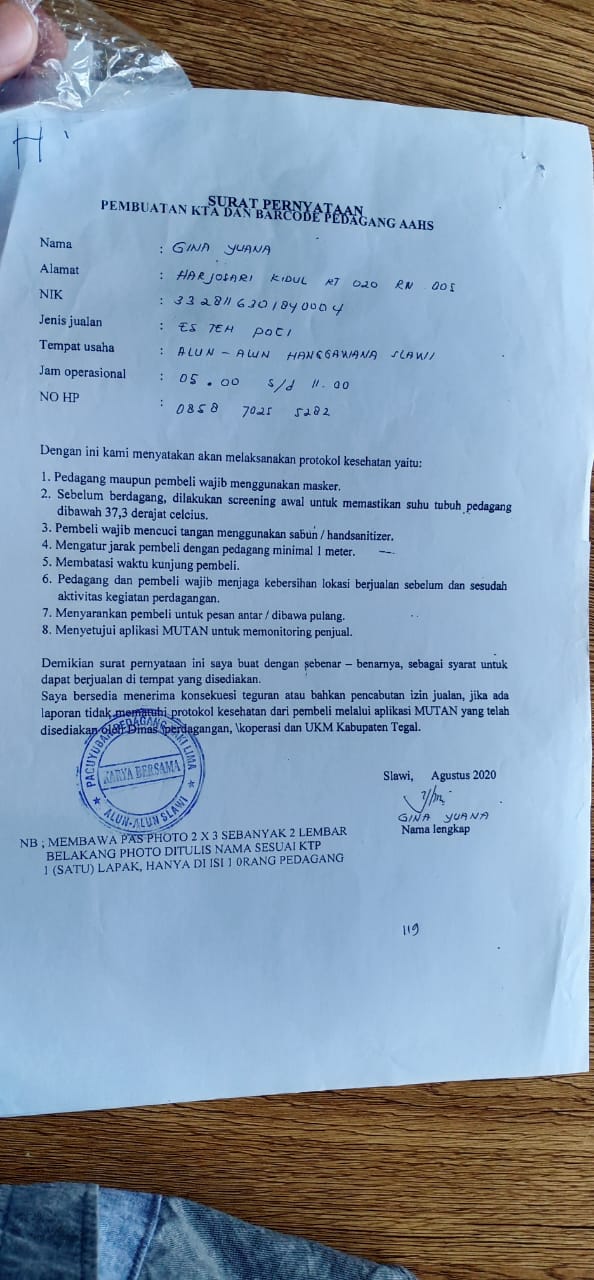 H
SURAT PERNYATAAN
PEMBUATAN KTA DAN BARCODE PEDAGANG AAHS
Nama : GINA YUANA
Alamat : HARJOSARI KIDUL RT 020 RW 005
NIK : 3328116301840004
Jenis jualan : ES TEH POCI
Tempat usaha : ALUN - ALUN HANGGAWANA SLAWI
Jam operasional : 05.00 s/d 11.00
NO HP : 0858 7025 5282
Dengan ini kami menyatakan akan melaksanakan protokol kesehatan yaitu:
1. Pedagang maupun pembeli wajib menggunakan masker.
2. Sebelum berdagang, dilakukan screening awal untuk memastikan suhu tubuh pedagang
dibawah 37,3 derajat celcius.
3. Pembeli wajib mencuci tangan menggunakan sabun / handsanitizer.
4. Mengatur jarak pembeli dengan pedagang minimal 1 meter.
5. Membatasi waktu kunjung pembeli.
6. Pedagang dan pembeli wajib menjaga kebersihan lokasi berjualan sebelum dan sesudah
aktivitas kegiatan perdagangan.
7. Menyarankan pembeli untuk pesan antar / dibawa pulang.
8. Menyetujui aplikasi MUTAN untuk memonitoring penjual.
Demikian surat pernyataan ini saya buat dengan sebenar – benarnya, sebagai syarat untuk
dapat berjualan di tempat yang disediakan.
Saya bersedia menerima konsekuesi teguran atau bahkan pencabutan izin jualan, jika ada
laporan tidak mematuhi protokol kesehatan dari pembeli melalui aplikasi MUTAN yang telah
disediakan oleh Dinas \perdagangan, \koperasi dan UKM Kabupaten Tegal.
PAGUYUBAN PEDAGANG KAKI LIMA
KARYA BERSAMA
ALUN-ALUN SLAWI
Slawi, Agustus 2020
GINA YUANA
Nama lengkap
NB ; MEMBAWA PAS PHOTO 2 X 3 SEBANYAK 2 LEMBAR
BELAKANG PHOTO DITULIS NAMA SESUAI KTP
1 (SATU) LAPAK, HANYA DI ISI 1 0RANG PEDAGANG
119